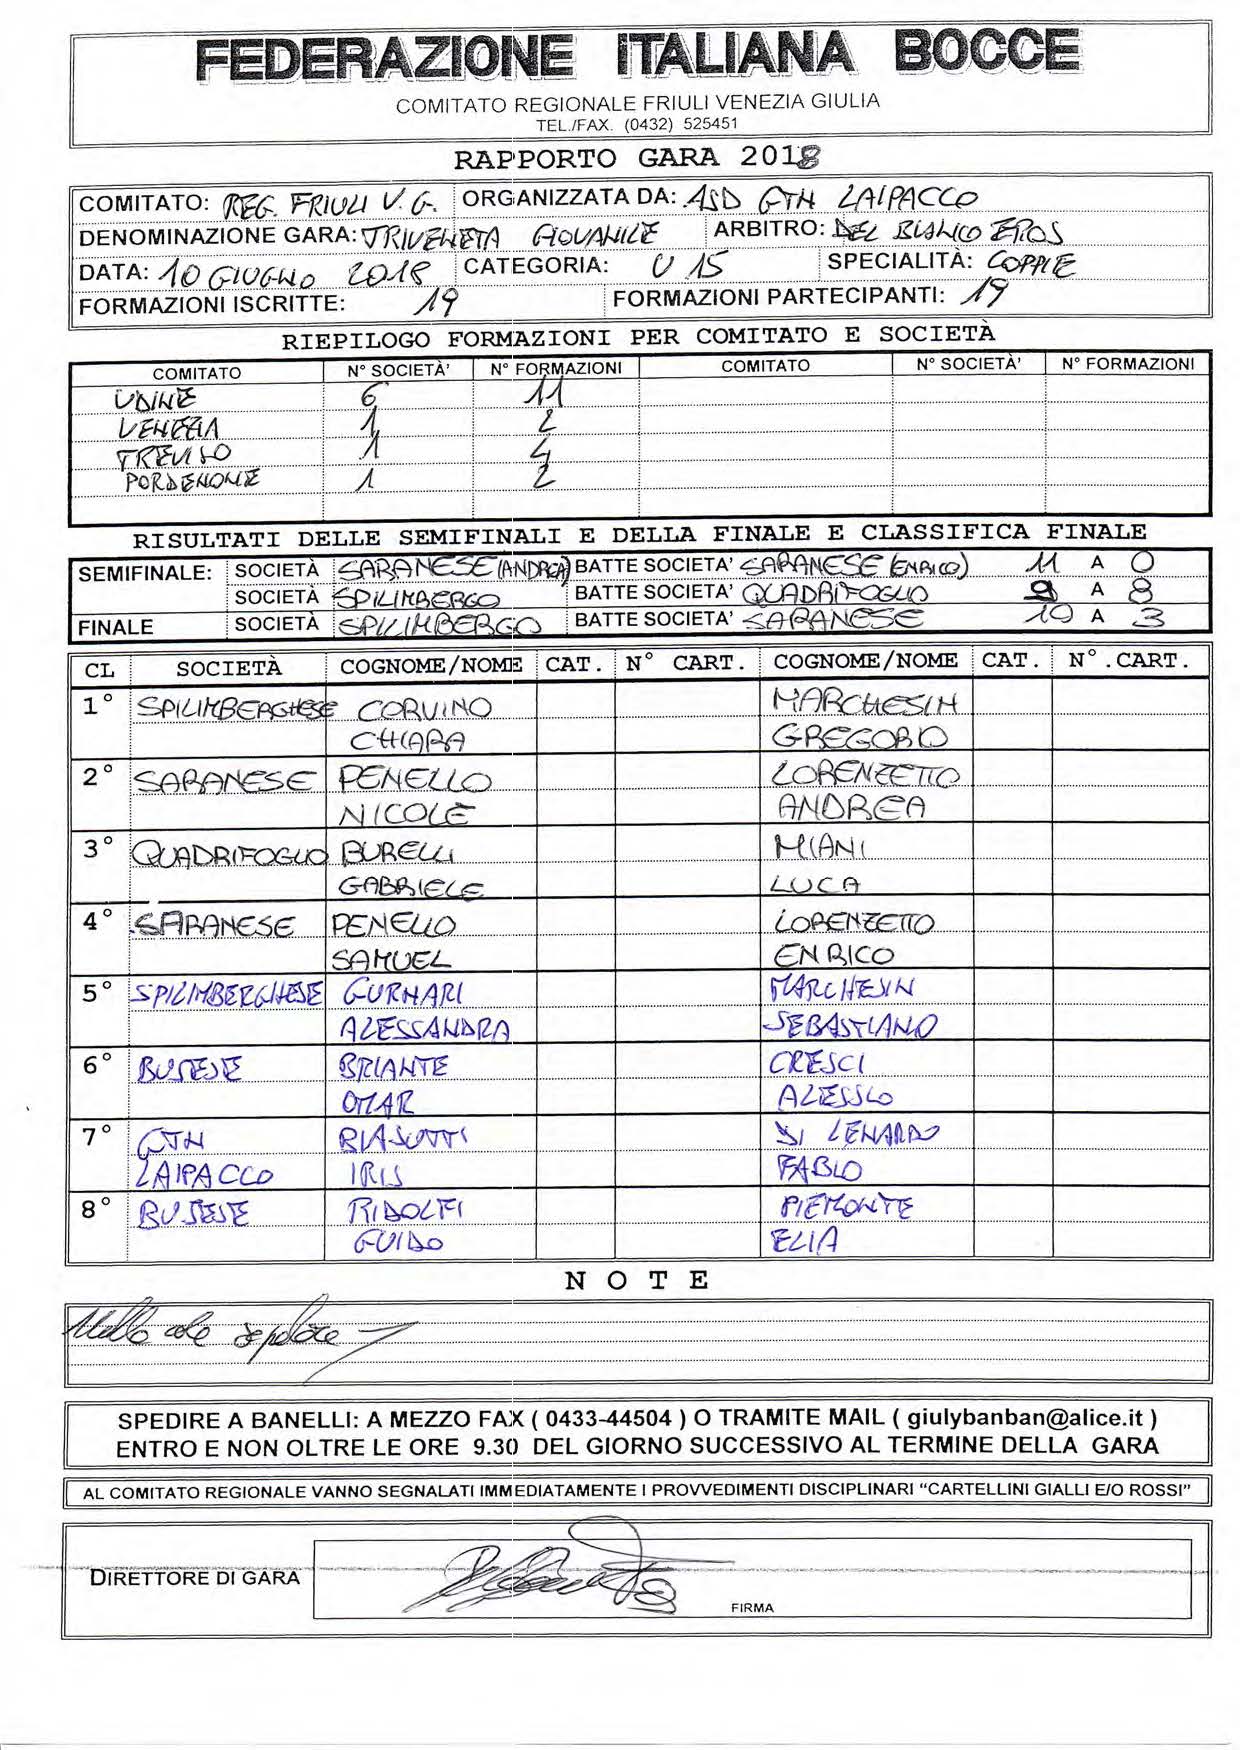 FEDERAZIONE ITALIANA BOCCE
COMITATO REGIONALE FRIULI VENEZIA GIULIA
TEL./FAX. (0432) 525451
RAPPORTO GARA 2018
COMITATO: REG. FRIULI V.G. ORGANIZZATA DA: ASD GTN LAIPACCO
DENOMINAZIONE GARA: TRIVENETA GIOVANILE ARBITRO: DEL BIANCO EROS
DATA: 10 GIUGNO 2018 CATEGORIA: U 15 SPECIALITÀ: COPPIE
FORMAZIONI ISCRITTE: 19 FORMAZIONI PARTECIPANTI: 19
RIEPILOGO FORMAZIONI PER COMITATO E SOCIETÀ
COMITATO N° SOCIETÀ' N° FORMAZIONI COMITATO N° SOCIETÀ' N° FORMAZIONI
UDINE 6 11
VENEZIA 1 2
TREVISO 1 4
PORDENONE 1 2
RISULTATI DELLE SEMIFINALI E DELLA FINALE E CLASSIFICA FINALE
SEMIFINALE: SOCIETÀ SARANESE (ANDREA) BATTE SOCIETA' SARANESE (ENRICO) 11 A 0
SOCIETÀ SPILIMBERGO BATTE SOCIETA' QUADRIFOGLIO 9 A 8
FINALE SOCIETÀ SPILIMBERGO BATTE SOCIETA' SARANESE 10 A 3
CL SOCIETÀ COGNOME/NOME CAT. N° CART. COGNOME/NOME CAT. N°.CART.
1° SPILIMBERGHESE CORVINO MARCHESIN
CHIARA GREGORIO
2° SARANESE PENELLO LORENZETTO
NICOLE ANDREA
3° QUADRIFOGLIO BURELLI MIANI
GABRIELE LUCA
4° SARANESE PENELLO LORENZETTO
SAMUEL ENRICO
5° SPILIMBERGHESE GURNARI MARCHESIN
ALESSANDRA SEBASTIANO
6° BUTTESE BRIANTE CRESCI
OMAR ALESSIO
7° GTN RIASOTTI DI LENARDO
LAIPACCO IRIS FABIO
8° BUTTESE RIDOLFI PIEMONTE
GUIDO ELIA
NOTE
Nulla da segnalare
SPEDIRE A BANELLI: A MEZZO FAX ( 0433-44504 ) O TRAMITE MAIL ( giulybanban@alice.it )
ENTRO E NON OLTRE LE ORE 9.30 DEL GIORNO SUCCESSIVO AL TERMINE DELLA GARA
AL COMITATO REGIONALE VANNO SEGNALATI IMMEDIATAMENTE I PROVVEDIMENTI DISCIPLINARI "CARTELLINI GIALLI E/O ROSSI"
DIRETTORE DI GARA
FIRMA